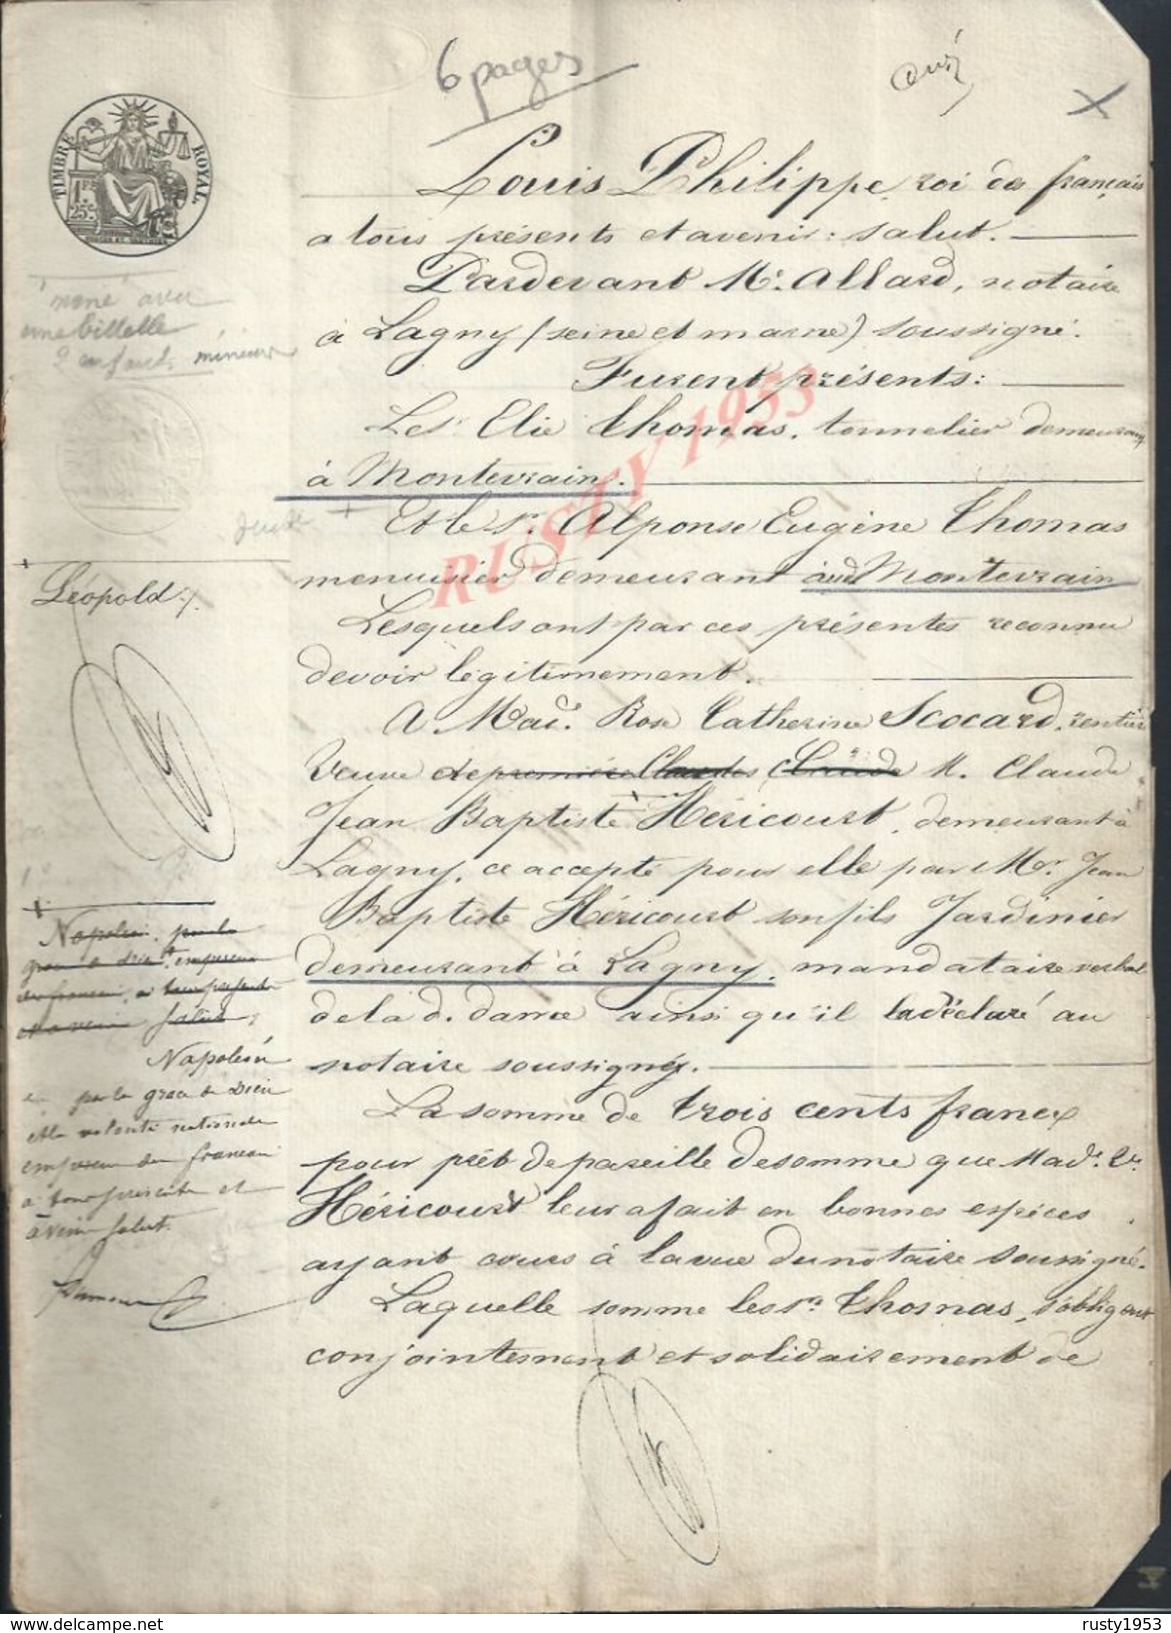 6 pages
TIMBRE ROYAL
25c
Louis Philippe, roi des français
a tous présents et avenir : salut.
Pardevant Me. Allard, notaire
à Lagny (seine et marne) soussigné.
Furent présents :
Le Sr. Elie Thomas, tonnelier demeurant
à Montevrain.
Et le Sr. Alponse Eugène Thomas
menuisier demeurant aud Montevrain
Lesquels ont par ces présentes reconnu
devoir légitimement.
A Made. Rose Catherine Scocard, rentière
Veuve de première Claude M. Claude
Jean Baptiste Héricourt, demeurant à
Lagny, ce accepté pour elle par Mr. Jean
Baptiste Héricourt son fils Jardinier
demeurant à Lagny, mandataire verbal
de la d. dame ainsi qu'il l'a déclaré au
notaire soussigné.
La somme de trois cents francs
pour prêt de pareille de somme que Made. Ve.
Héricourt leur a fait en bonnes espèces
ayant cours à la vue du notaire soussigné.
Laquelle somme les Srs Thomas, s'obligent
conjointement et solidairement de
avec
2 enfants mineurs
Léopold
Napoléon, par la
grace de dieu, empereur
des francais, a tous présents
et a venir salut,
Napoléon
par la grace de Dieu
et la volonté nationale
empereur des francais
a tous présents et
à venir salut.
RUSTY 1953
rusty1953